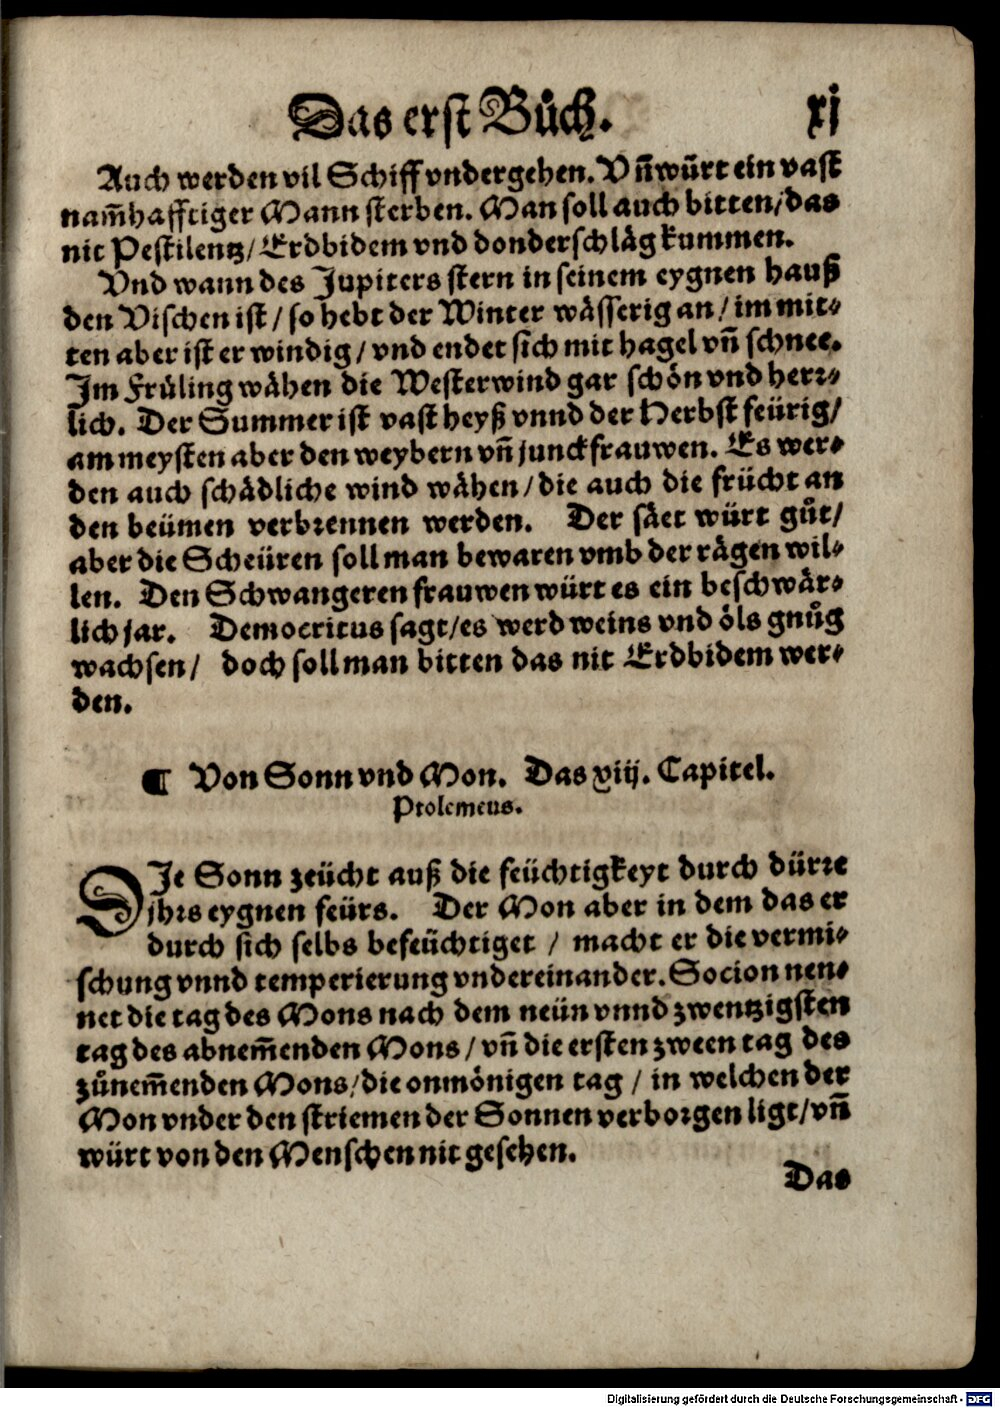 Das erst Bůch. xj
Auch werden vil Schiff vndergehen. Vñ würt ein vast
nam̄hafftiger Mann sterben. Man soll auch bitten/das
nit Pestilentz/Erdbidem vnd donderschläg kummen.
Vnd wann des Jupiters stern in seinem eygnen hauß
den Vischen ist/so hebt der Winter wässerig an/im mit⸗
ten aber ist er windig/vnd endet sich mit hagel vñ schnee.
Im Früling wähen die Westerwind gar schön vnd herr⸗
lich. Der Summer ist vast heyß vnnd der Herbst feürig/
am meysten aber den weybern vñ junckfrauwen. Es wer⸗
den auch schädliche wind wähen/die auch die frücht an
den beümen verbrennen werden. Der säet würt gůt/
aber die Scheüren soll man bewaren vmb der rägen wil⸗
len. Den Schwangeren frauwen würt es ein beschwär⸗
lich jar. Democritus sagt/es werd weins vnd öls gnůg
wachsen/ doch soll man bitten das nit Erdbidem wer⸗
den.
¶ Von Sonn vnd Mon. Das xiij. Capitel.
Ptolemeus.
DJe Sonn zeücht auß die feüchtigkeyt durch dürre
jhrs eygnen feürs. Der Mon aber in dem das er
durch sich selbs befeüchtiget / macht er die vermi⸗
schung vnnd temperierung vndereinander. Socion nen⸗
net die tag des Mons nach dem neün vnnd zwentzigsten
tag des abnem̄enden Mons/vñ die ersten zween tag des
zůnem̄enden Mons/die onmönigen tag/in welchen der
Mon vnder den striemen der Sonnen verborgen ligt/vñ
würt von den Menschen nit gesehen.
Das
Digitalisierung gefördert durch die Deutsche Forschungsgemeinschaft - DFG